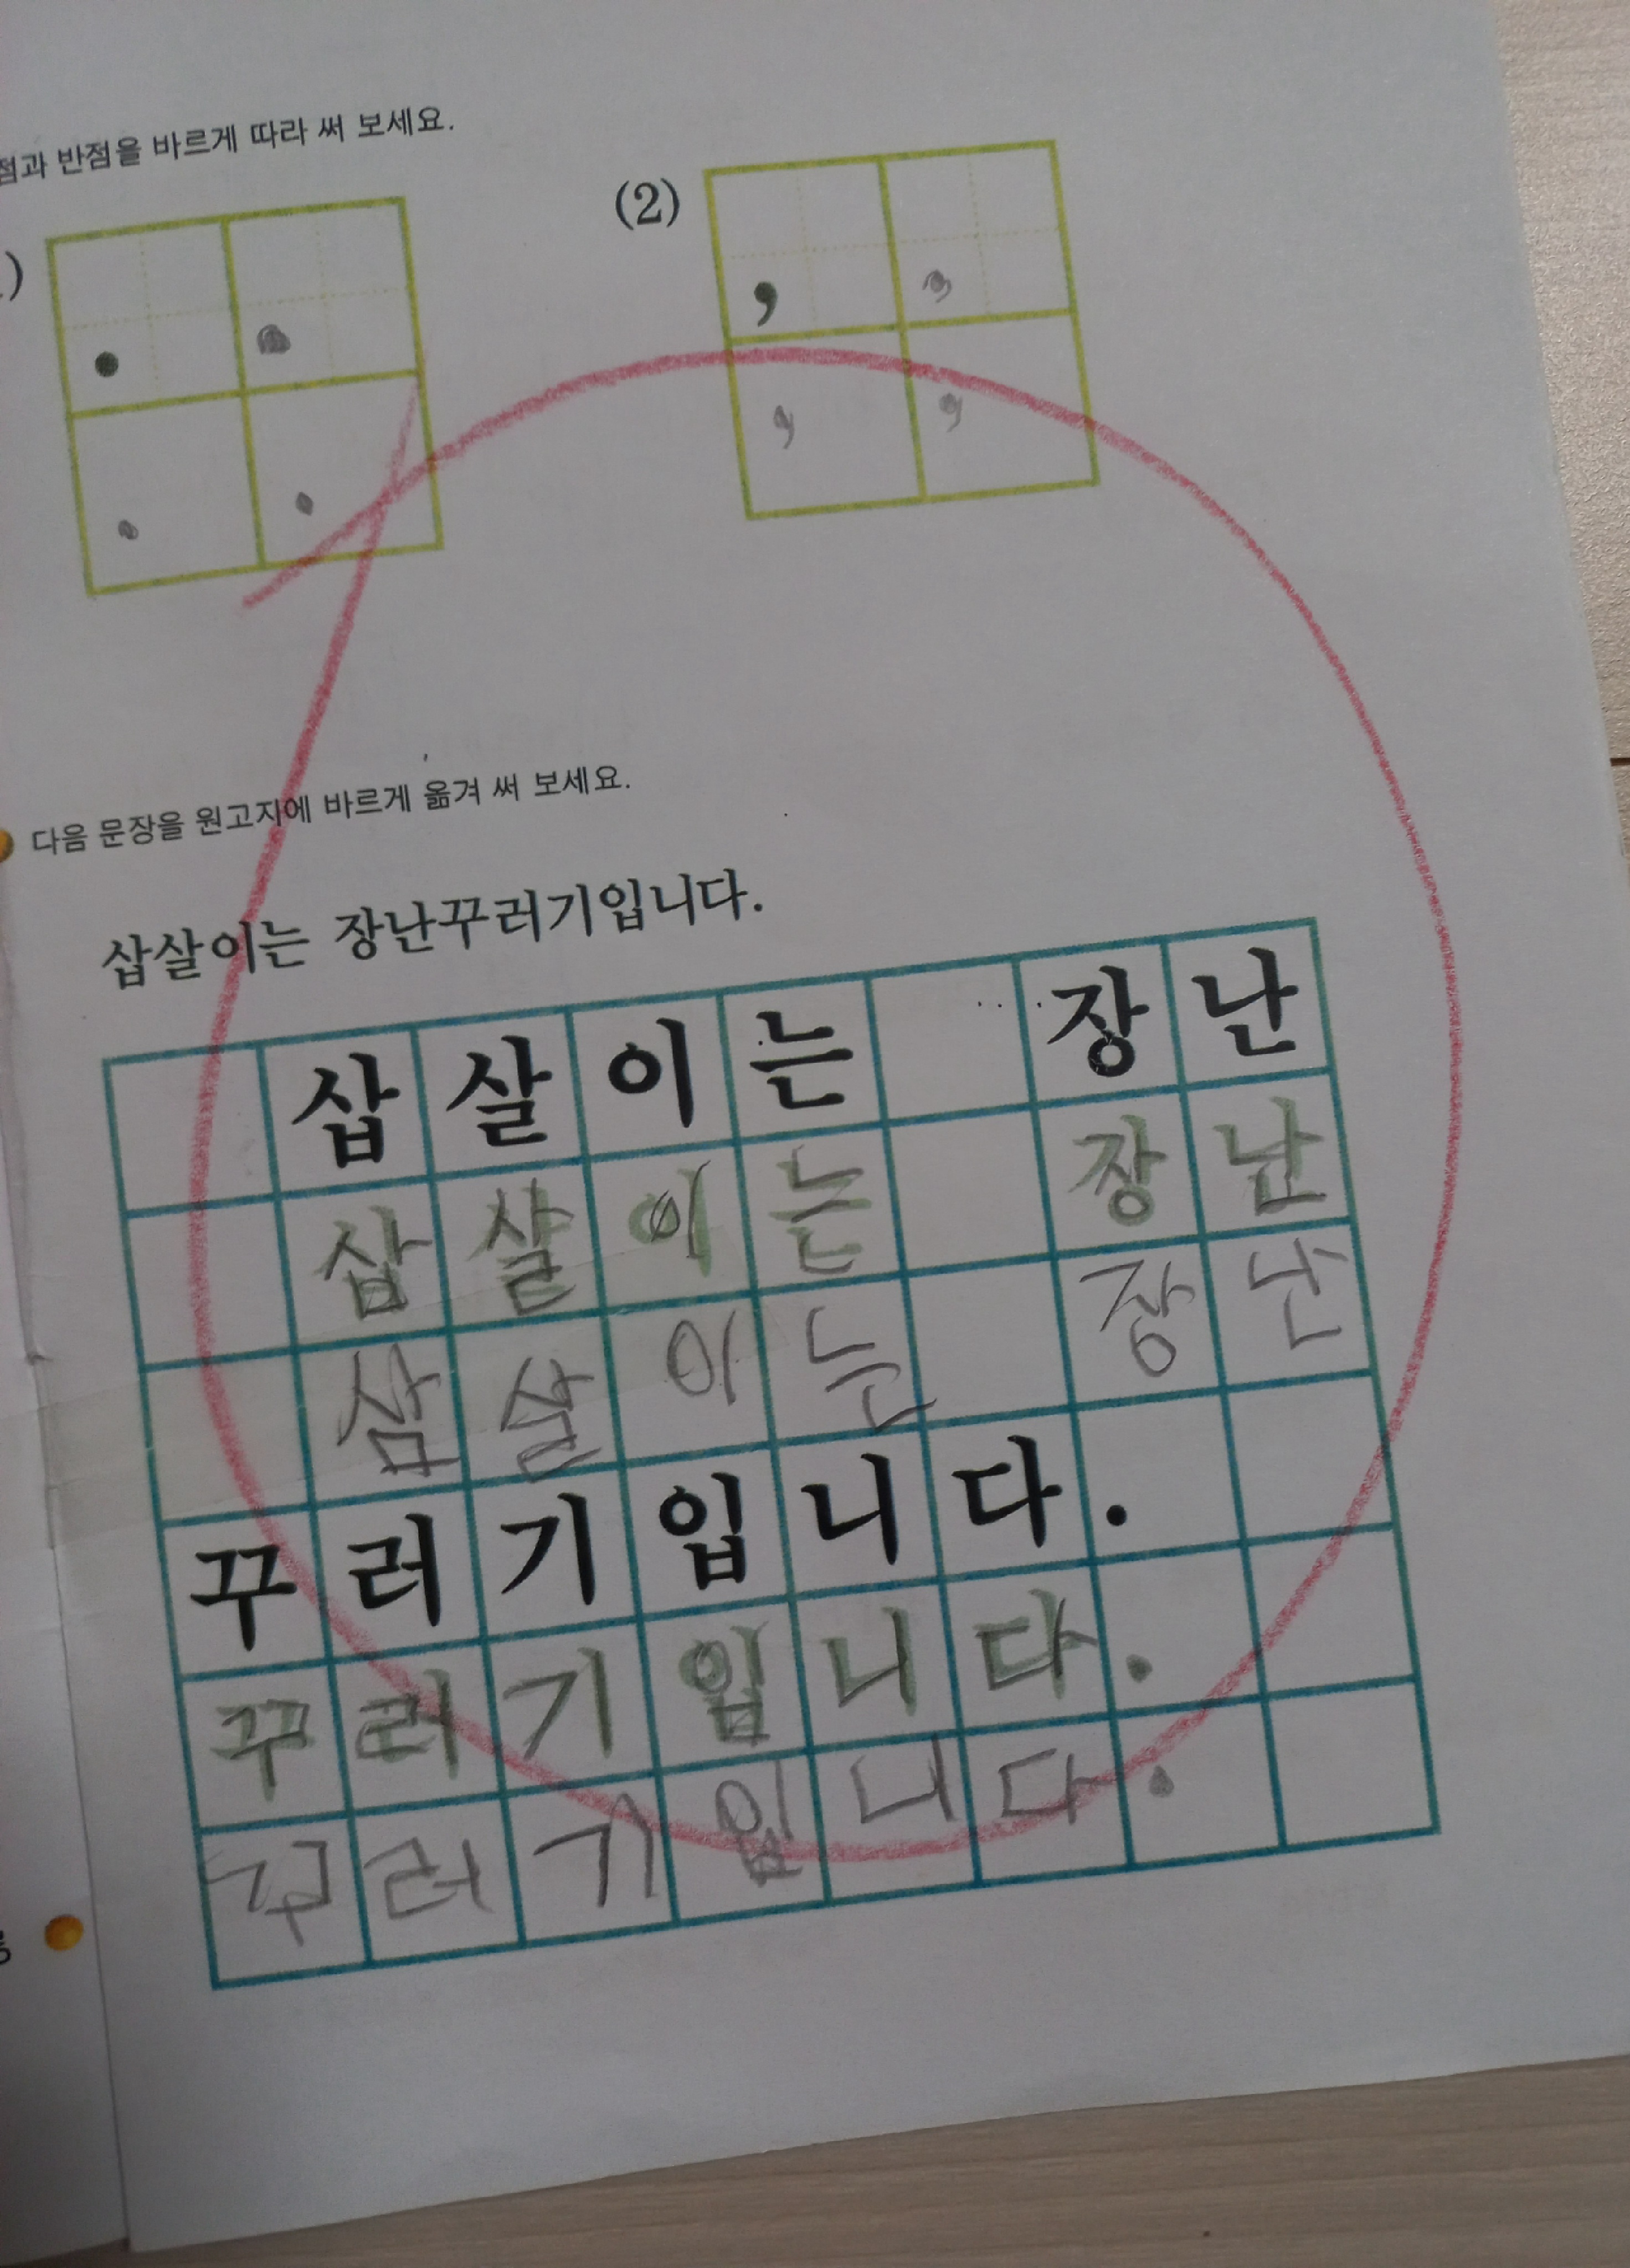 점과 반점을 바르게 따라 써 보세요.
) (2)
. .
. .
, ,
, ,
다음 문장을 원고지에 바르게 옮겨 써 보세요.
삽살이는 장난꾸러기입니다.
삽살이는 장난
삽살이는 장난
삼살이는 장난
꾸러기입니다.
꾸러기입니다.
꾸러기입니다.